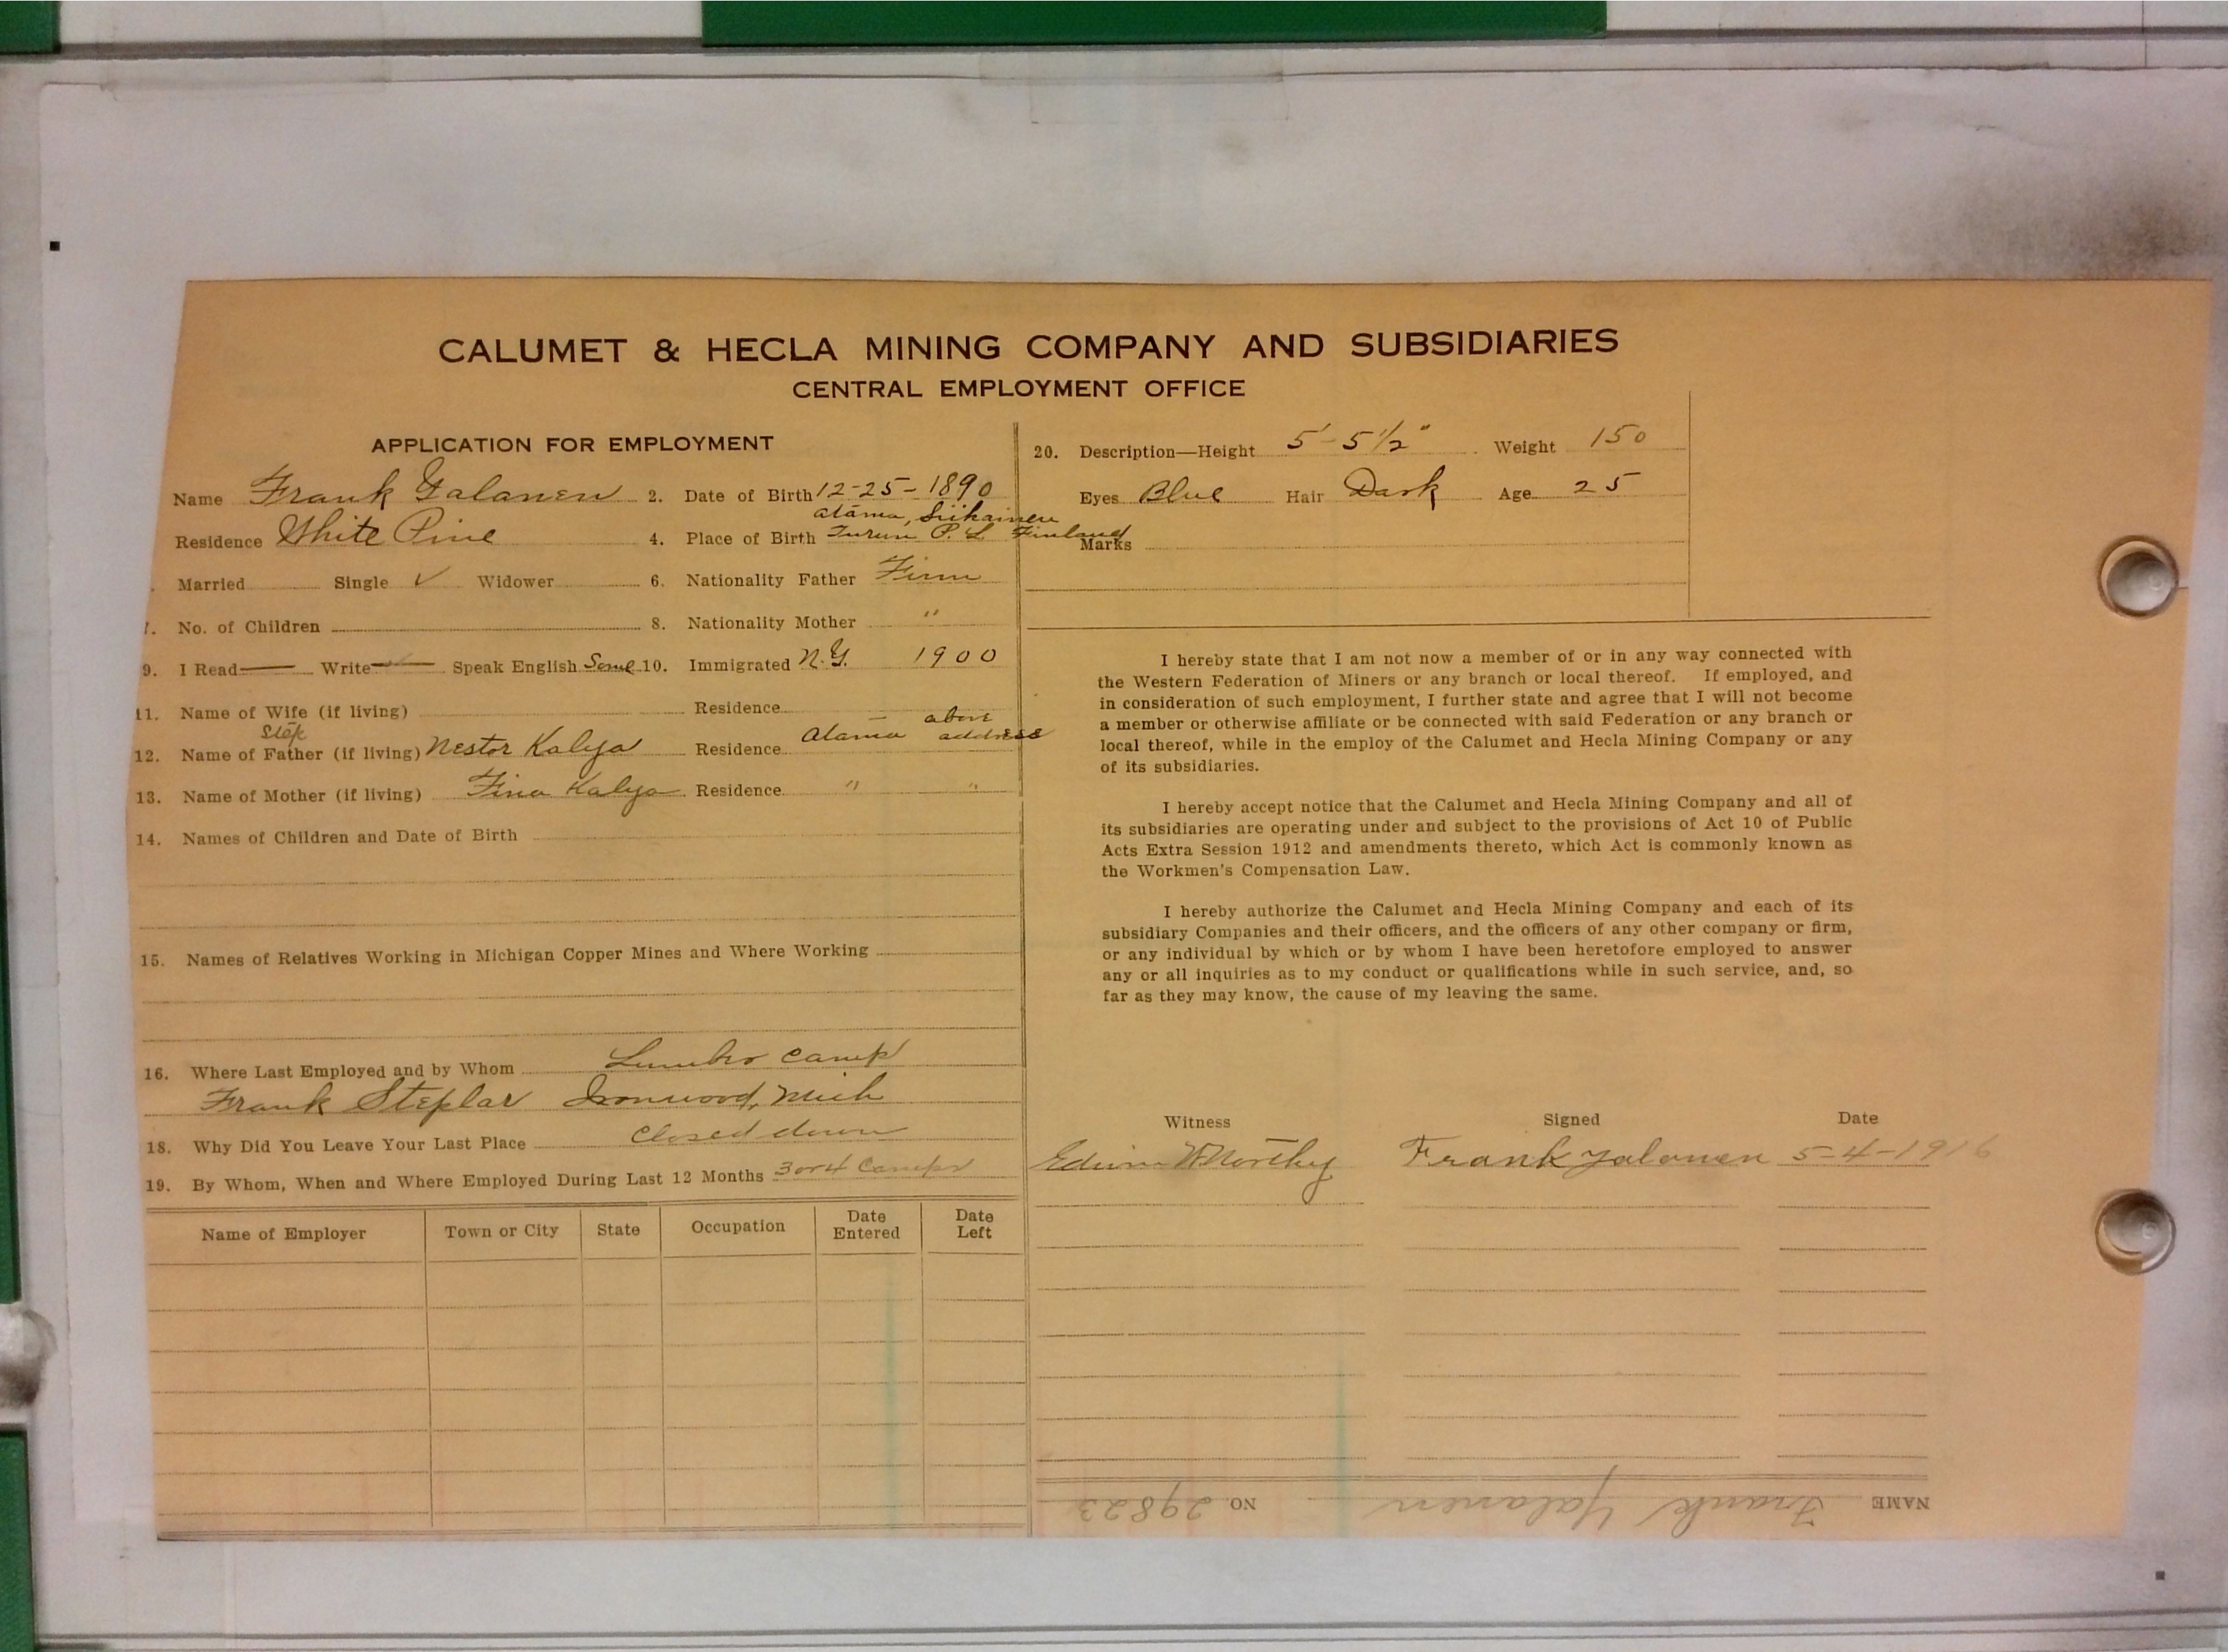 CALUMET & HECLA MINING COMPANY AND SUBSIDIARIES
CENTRAL EMPLOYMENT OFFICE
APPLICATION FOR EMPLOYMENT
Name Frank Yalanen 2. Date of Birth 12-25-1890
Atama, Siikainen
Residence White Pine 4. Place of Birth Turun P. L Finland
Married Single ✓ Widower 6. Nationality Father Finn
7. No. of Children 8. Nationality Mother "
9. I Read — Write — Speak English Some 10. Immigrated N.Y. 1900
11. Name of Wife (if living) Residence
Step above
12. Name of Father (if living) Nestor Kalya Residence Atama address
13. Name of Mother (if living) Fina Kalya Residence " "
14. Names of Children and Date of Birth
15. Names of Relatives Working in Michigan Copper Mines and Where Working
16. Where Last Employed and by Whom Lumber camp
Frank Steplar Ironwood, Mich
18. Why Did You Leave Your Last Place Closed down
19. By Whom, When and Where Employed During Last 12 Months 3 or 4 Camps
Name of Employer Town or City State Occupation Date Entered Date Left
20. Description—Height 5'-5 1/2" Weight 150
Eyes Blue Hair Dark Age 25
Marks
I hereby state that I am not now a member of or in any way connected with
the Western Federation of Miners or any branch or local thereof. If employed, and
in consideration of such employment, I further state and agree that I will not become
a member or otherwise affiliate or be connected with said Federation or any branch or
local thereof, while in the employ of the Calumet and Hecla Mining Company or any
of its subsidiaries.
I hereby accept notice that the Calumet and Hecla Mining Company and all of
its subsidiaries are operating under and subject to the provisions of Act 10 of Public
Acts Extra Session 1912 and amendments thereto, which Act is commonly known as
the Workmen's Compensation Law.
I hereby authorize the Calumet and Hecla Mining Company and each of its
subsidiary Companies and their officers, and the officers of any other company or firm,
or any individual by which or by whom I have been heretofore employed to answer
any or all inquiries as to my conduct or qualifications while in such service, and, so
far as they may know, the cause of my leaving the same.
Witness Signed Date
Edwin Frank Yalonen 5-4-1916
NAME Frank Yalanen NO. 29823